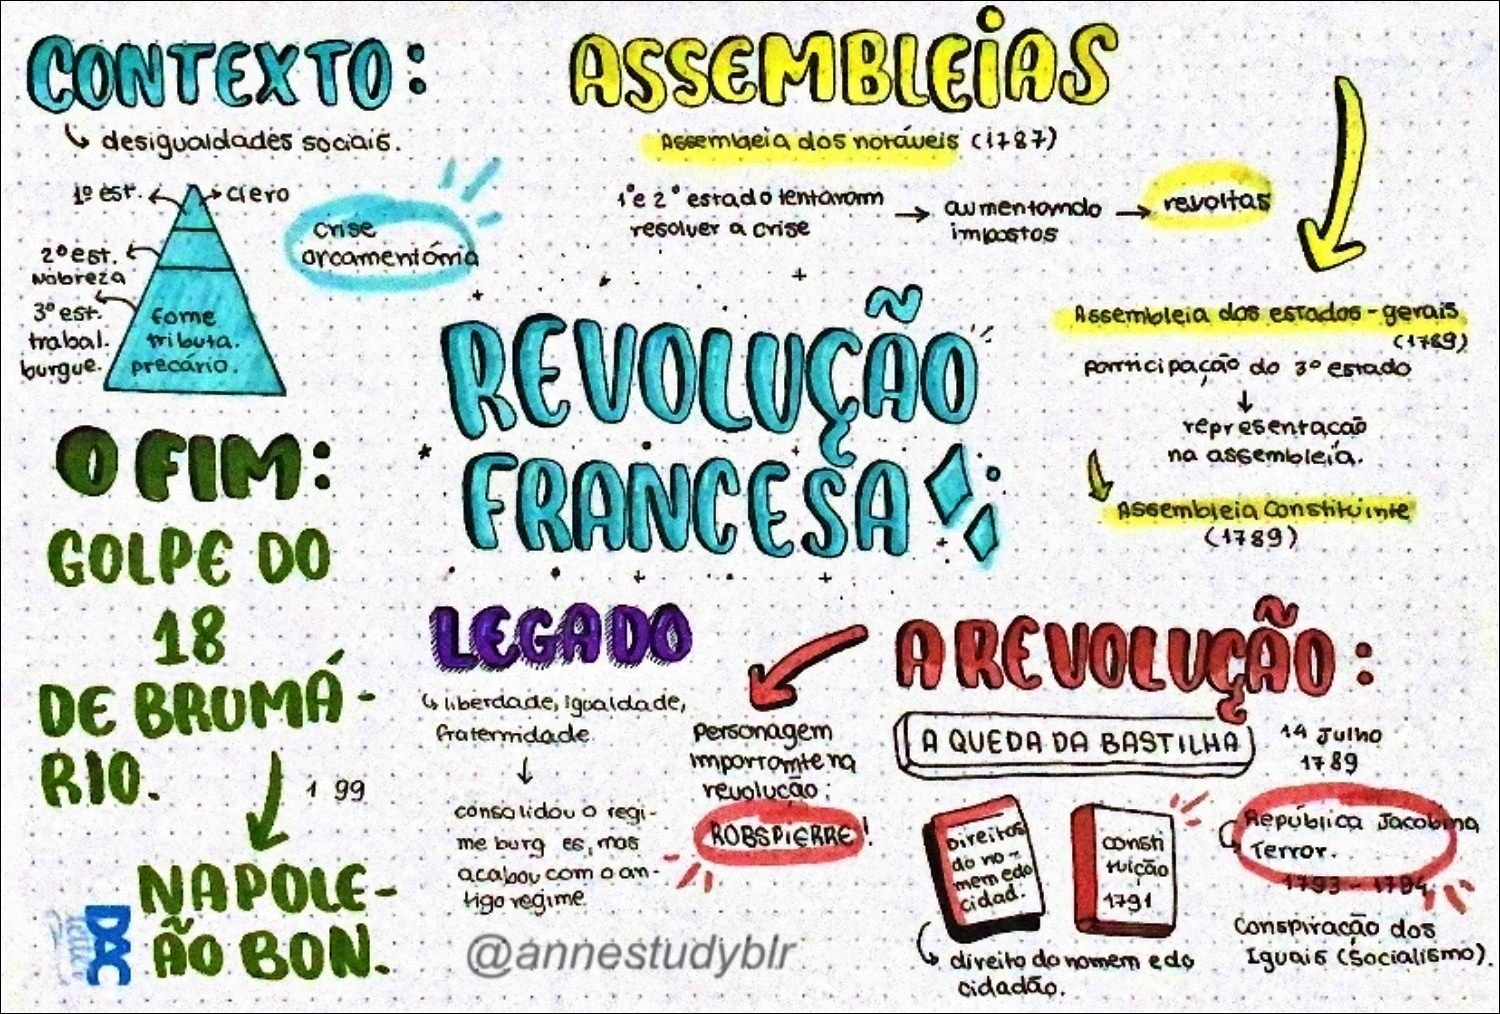 CONTEXTO:
↳ desigualdades sociais.
1º est.
clero
2º est.
nobreza
3º est.
trabal.
burgue.
fome
tributa.
precário.
crise
orcamentária
ASSEMBLEIAS
Assembleia dos notáveis (1787)
1º e 2º estado tentavam
resolver a crise
→ aumentando
impostos
→ revoltas
Assembleia dos estados-gerais
(1789)
participação do 3º estado
↓
representação
na assembleia.
Assembleia Constituinte
(1789)
REVOLUÇÃO
FRANCESA
O FIM:
GOLPE DO
18
DE BRUMÁ-
RIO.
1 99
NAPOLE-
ÃO BON.
LEGADO
↳ liberdade, igualdade,
fraternidade
↓
consolidou o regi-
me burg es, mas
acabou com o an-
tigo regime
Personagem
importante na
revolução:
ROBSPIERRE!
A REVOLUÇÃO:
A QUEDA DA BASTILHA
14 Julho
1789
Direitos
do ho-
mem e do
cidad.
consti
tuição
1791
República Jacobina
Terror.
1793 - 1794
direito do homem e do
cidadão.
Conspiração dos
Iguais (Socialismo).
@annestudyblr